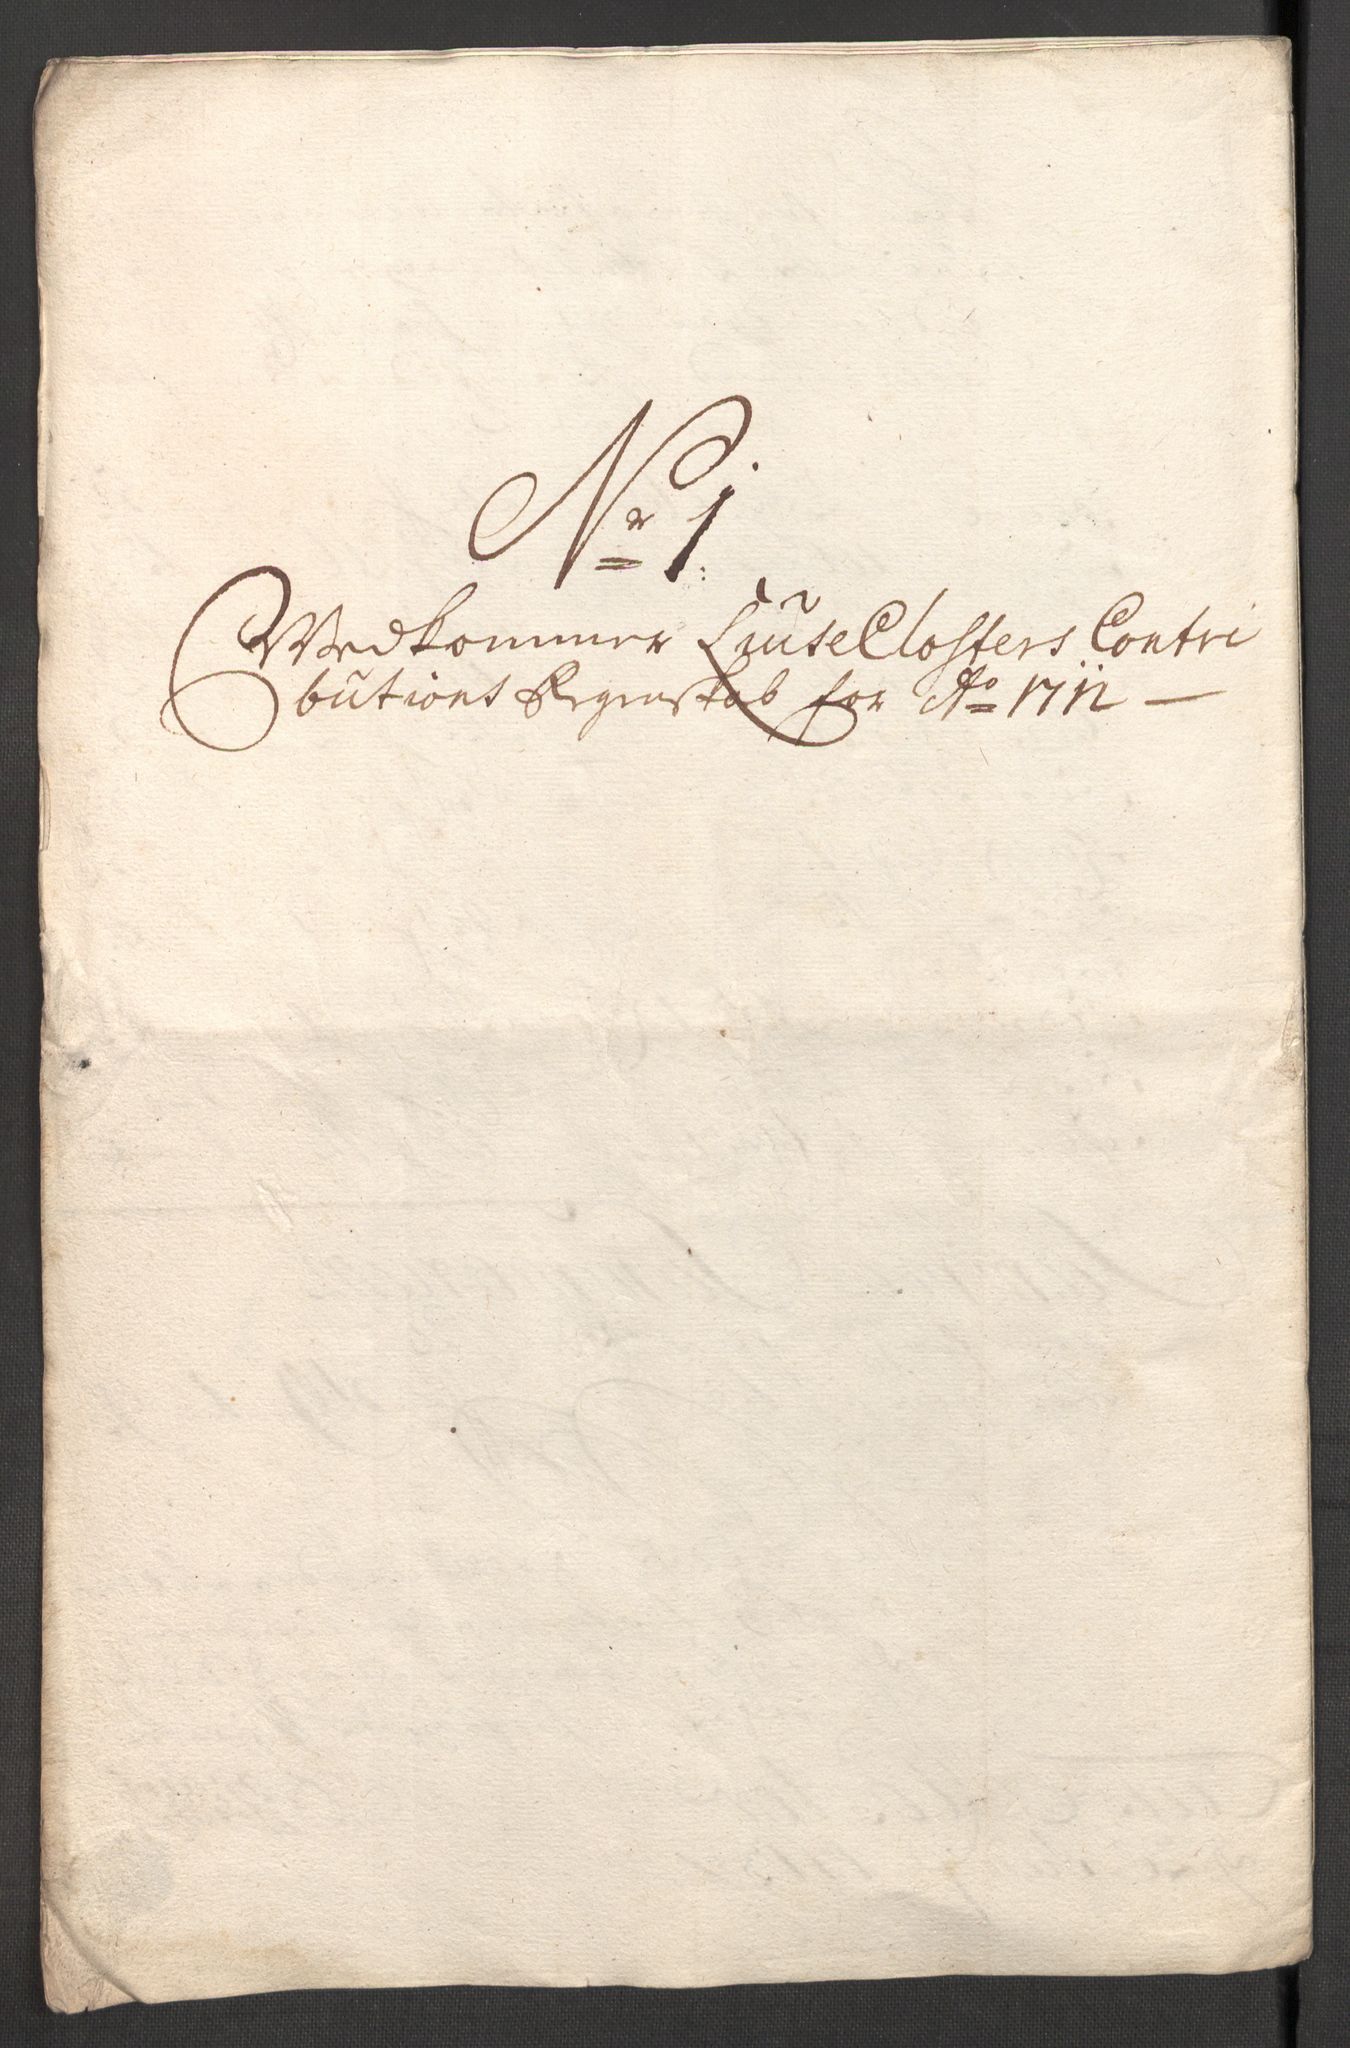 Nr 1:
Vedkommer LiuseClosters Contri
butions Regenskab for Ao 1712 —